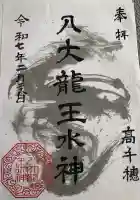 奉拝
高千穂
八大龍王水神
令和七年二月